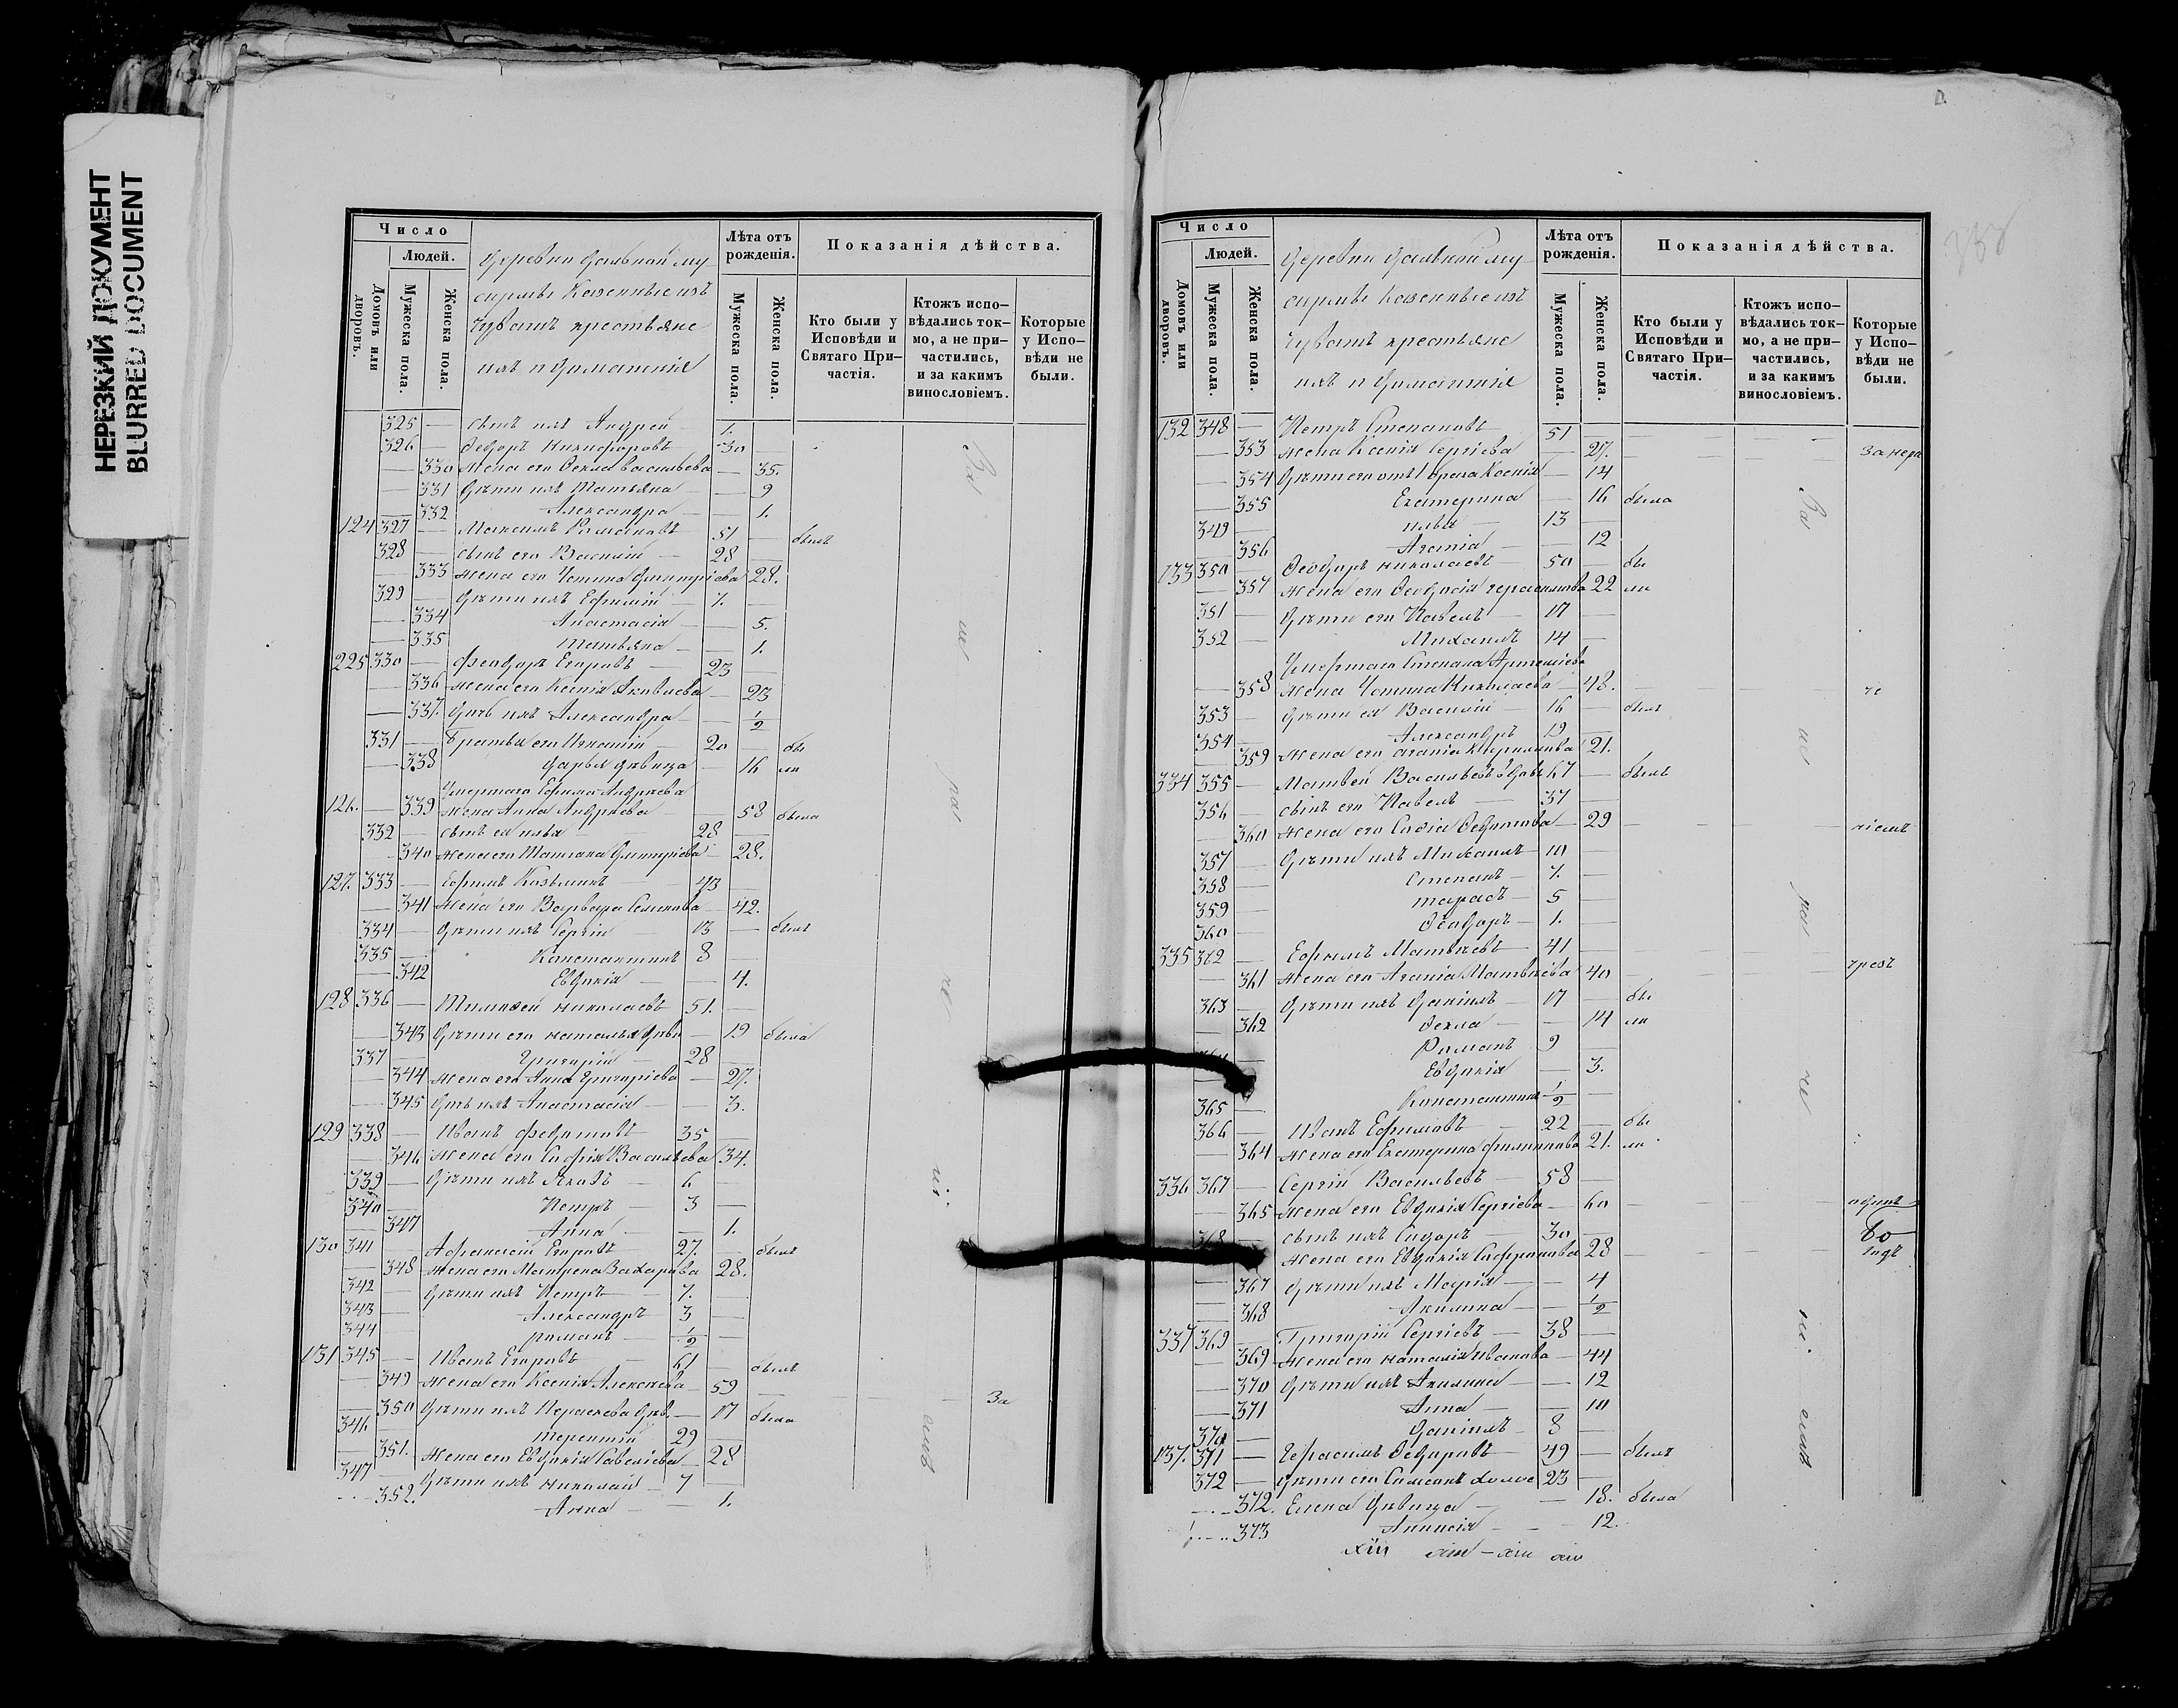 НЕРЕЗКИЙ ДОКУМЕНТ
BLURRED DOCUMENT
Число
Людей.
Домовъ или дворовъ.
Мужеска пола.
Женска пола.
Деревни
Казенные изъ
Чувашъ крестьяне
ихъ и домашнія
Лѣта отъ рожденія.
Мужеска пола.
Женска пола.
Показанія дѣйства.
Кто были у Исповѣди и Святаго Причастія.
Ктожъ исповѣдались токмо, а не причастились, и за какимъ винословіемъ.
Которые у Исповѣди не были.
325 — сынъ ихъ Андрей 1.
326 — Ѳедоръ Никифоровъ 30 —
— 330 жена его Ѳекла Васильева — 35.
— 331 Дѣти ихъ Татьяна — 9
— 332 Александра — 1.
124 327 — Максимъ Романовъ 51 — былъ
328 — сынъ его Василій — 28 —
— 333 жена его Устина Димитріева 28.
329 — Дѣти ихъ Ефимій — 7. —
— 334 Анастасія — 5.
— 335 Татьяна — 1.
225 330 — Феодоръ Егоровъ — 23
— 336 жена его Ксенія Яковлева — 23
— 337. Дочь ихъ Александра — 1/2
331 — Братья его Игнатій — 20 — бы
— 338 Дарья дѣвица — 16 ли
Умершаго Ефима Андреева
126. — 339 жена Анна Андреева — 58 была
332 — сынъ ея Илья 28 —
— 340 жена его Татьяна Димитріева — 28.
127. 333 — Ефимъ Козьминъ 43 —
— 341 жена его Варвара Семенова — 42.
334 — Дѣти ихъ Сергій 13 — былъ
335 — Константинъ 8 —
— 342 Евдокія — 4.
128 336 — Тимофей Николаевъ 51. —
— 343 Дѣти его Наталья дѣви — 19 была
337 — Григорій 28 —
— 344 жена его Анна Григоріева — 27.
— 345 Дочь ихъ Анастасія — 3.
129 338 — Иванъ Федотовъ — 35 —
— 346 жена его Софія Васильева 34.
339 — Дѣти ихъ Яковъ — 6 —
340 Петръ — 3 —
— 347 Анна — 1.
130 341 Афанасій Егоровъ 27. — былъ
— 348 жена его Матрена Захарова 28.
342 — Дѣти ихъ Петръ — 7. —
343 — Александръ 3 —
344 — Романъ — 1/2 —
131 345 — Иванъ Егоровъ 61 — былъ
— 349 жена его Ксенія Алексеева — 59 — За
— 350 Дѣти ихъ Параскева дѣв. — 17 была
346 — Терентій 29 —
— 351. жена его Евдокія Савеліева — 28
347 — Дѣти ихъ Николай — 7 —
352. Анна — 1.
Число
Людей.
Домовъ или дворовъ.
Мужеска пола
Женска пола.
Деревни
казенные изъ
Чувашъ крестьяне
ихъ и домашнія
Лѣта отъ рожденія.
Мужеска пола.
Женска пола.
Показанія дѣйства.
Кто были у Исповѣди и Святаго Причастія.
Ктожъ исповѣдались токмо, а не причастились, и за какимъ винословіемъ.
Которые у Исповѣди не были.
132 348 — Петръ Степановъ 51
— 353 жена Ксенія Сергіева — 27. — за нера
— 354 Дѣти его отъ 1 брака Ксенія — 14
— 355 Екатерина — 16 была
349 — Илья — 13 —
— 356 Агапія — 12
133 350 — Ѳеодоръ Николаевъ 50 — бы
— 357 жена его Ѳеодосія Герасимова 22 ли
351 — Дѣти его Павелъ — 17 —
352 — Михаилъ 14 —
Умершаго Степана Артеміева
— 358 жена Устина Николаева — 48. — че
353 — Дѣти ея Василій — 16 — былъ
354 — Александръ 19 —
— 359 жена его Агапія Кириллова 21.
334 355 — Матвей Васильевъ вдовъ 67 — былъ
356 — сынъ его Павелъ — 37 —
— 360 жена его Софія Ѳедотова — 29 — ніемъ
357 — Дѣти ихъ Михаилъ 10 —
358 — Степанъ — 7. —
359 — Тарасъ — 5 —
360 — Ѳеодоръ — 1. —
335 362 — Ефимъ Матвеевъ — 41 —
— 361 жена его Агапія Матвеева 40 — чрезъ
363 — Дѣти ихъ Даніилъ — 17 — бы
— 362 Ѳекла — 14 ли
Романъ 9 —
Евдокія — 3.
365 — Константинъ 1/2 —
366 — Иванъ Ефимовъ — 22 — бы
— 364 жена его Екатерина Филиппова 21. ли
336 367 — Сергій Васильевъ — 58 —
— 365 жена его Евдокія Сергіева — 60 — одинъ
368 — сынъ ихъ Сидоръ 30 — 60
жена его Евдокія Софронова 28 — годъ
— 367 Дѣти ихъ Марія — 4
— 368 Акилина — 1/2
337 369 — Григорій Сергіевъ — 38 —
— 369 жена его Наталія Иванова — 44
— 370 Дѣти ихъ Акилина — 12
— 371 Анна — 10
370 — Даніилъ 8 —
137. 371 — Герасимъ Ѳедоровъ 49 — былъ
372 — Дѣти его Симеонъ холос 23 —
372. Елена дѣвица — 18. была
373 Анисія — 12.